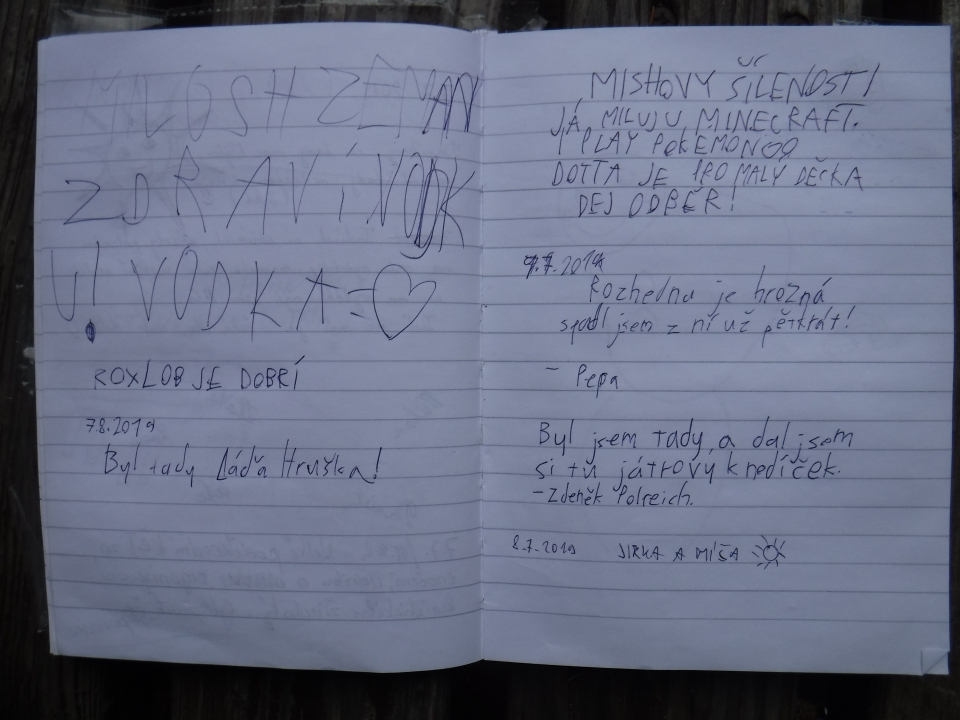 MILOSH ZEMAN
ZDRAVÍ VODK
U! VODKA = ♡
ROXLOB JE DOBRÍ
7.8.2019
Byl tady Láďa Hruška!
MISHOVY ŠÍLENOSTI
JÁ MILUJU MINECRAFT.
I PLAY POKEMONGO
DOTTA JE PRO MALÝ DĚCKA
DEJ ODBĚR!
7.7.2019
Rozhedna je hrozná
spadl jsem z ní už pětkrát!
- Pepa
Byl jsem tady, a dal jsem
si tu játrový knedíček.
- Zdeněk Polreich.
8.7.2019 JIRKA A MÍŠA